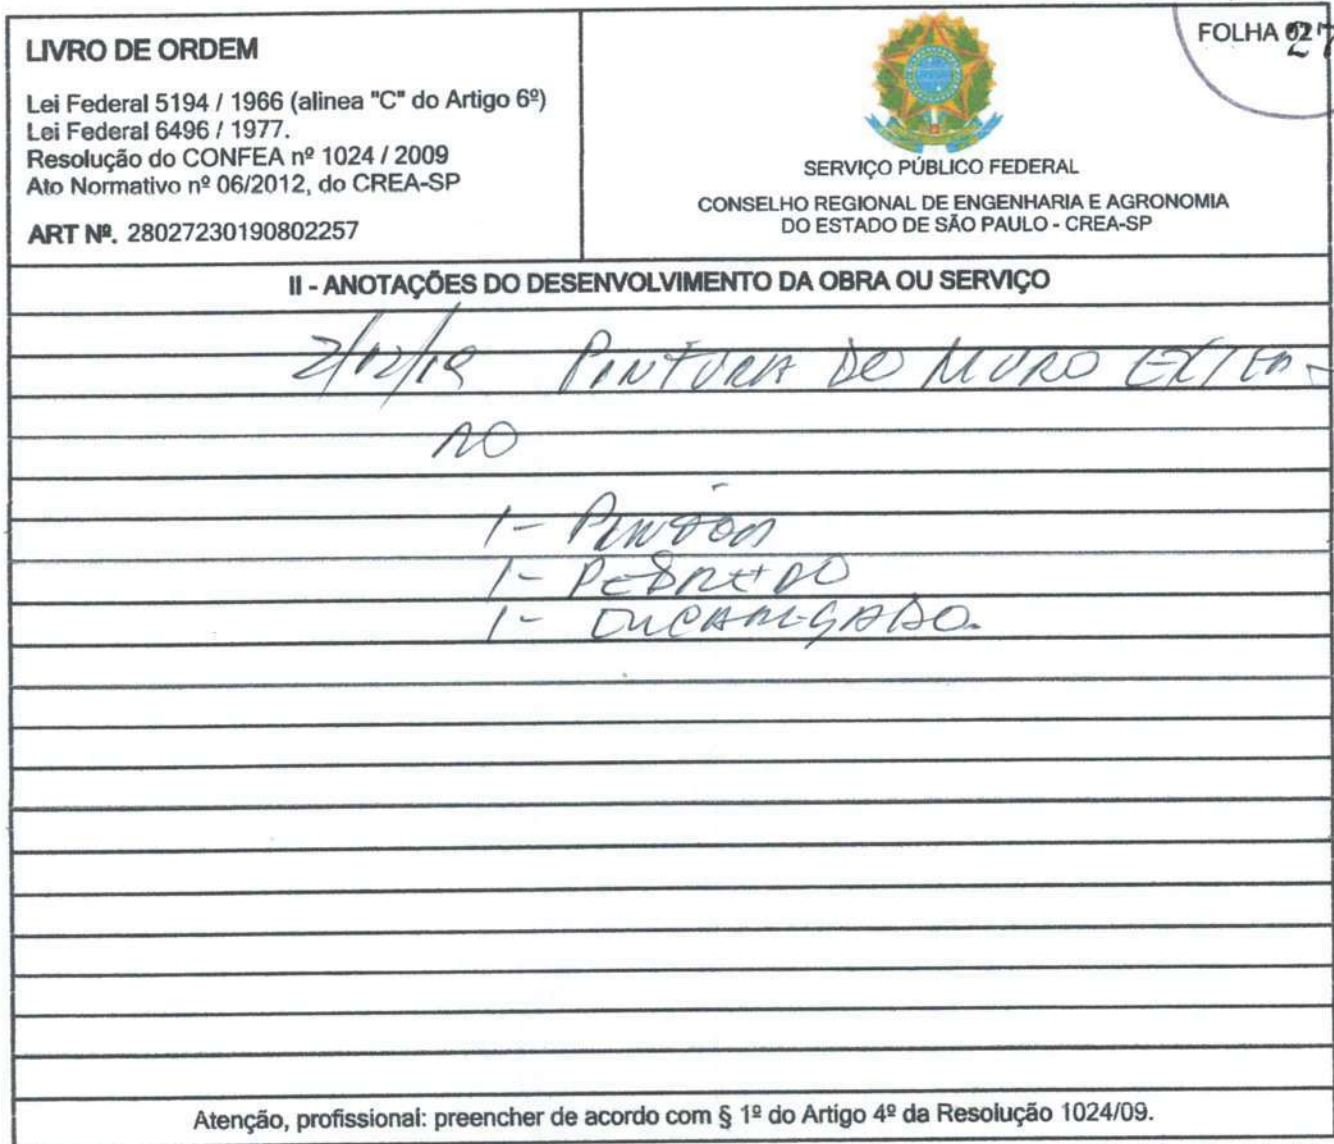 LIVRO DE ORDEM
Lei Federal 5194 / 1966 (alinea "C" do Artigo 6º)
Lei Federal 6496 / 1977.
Resolução do CONFEA nº 1024 / 2009
Ato Normativo nº 06/2012, do CREA-SP
ART Nº. 28027230190802257
FOLHA 02
27
SERVIÇO PÚBLICO FEDERAL
CONSELHO REGIONAL DE ENGENHARIA E AGRONOMIA
DO ESTADO DE SÃO PAULO - CREA-SP
II - ANOTAÇÕES DO DESENVOLVIMENTO DA OBRA OU SERVIÇO
2/12/19 PINTURA DO MURO EXTER-
NO
1- PINTOR
1- PEDREIRO
1- ENCARREGADO.
Atenção, profissional: preencher de acordo com § 1º do Artigo 4º da Resolução 1024/09.